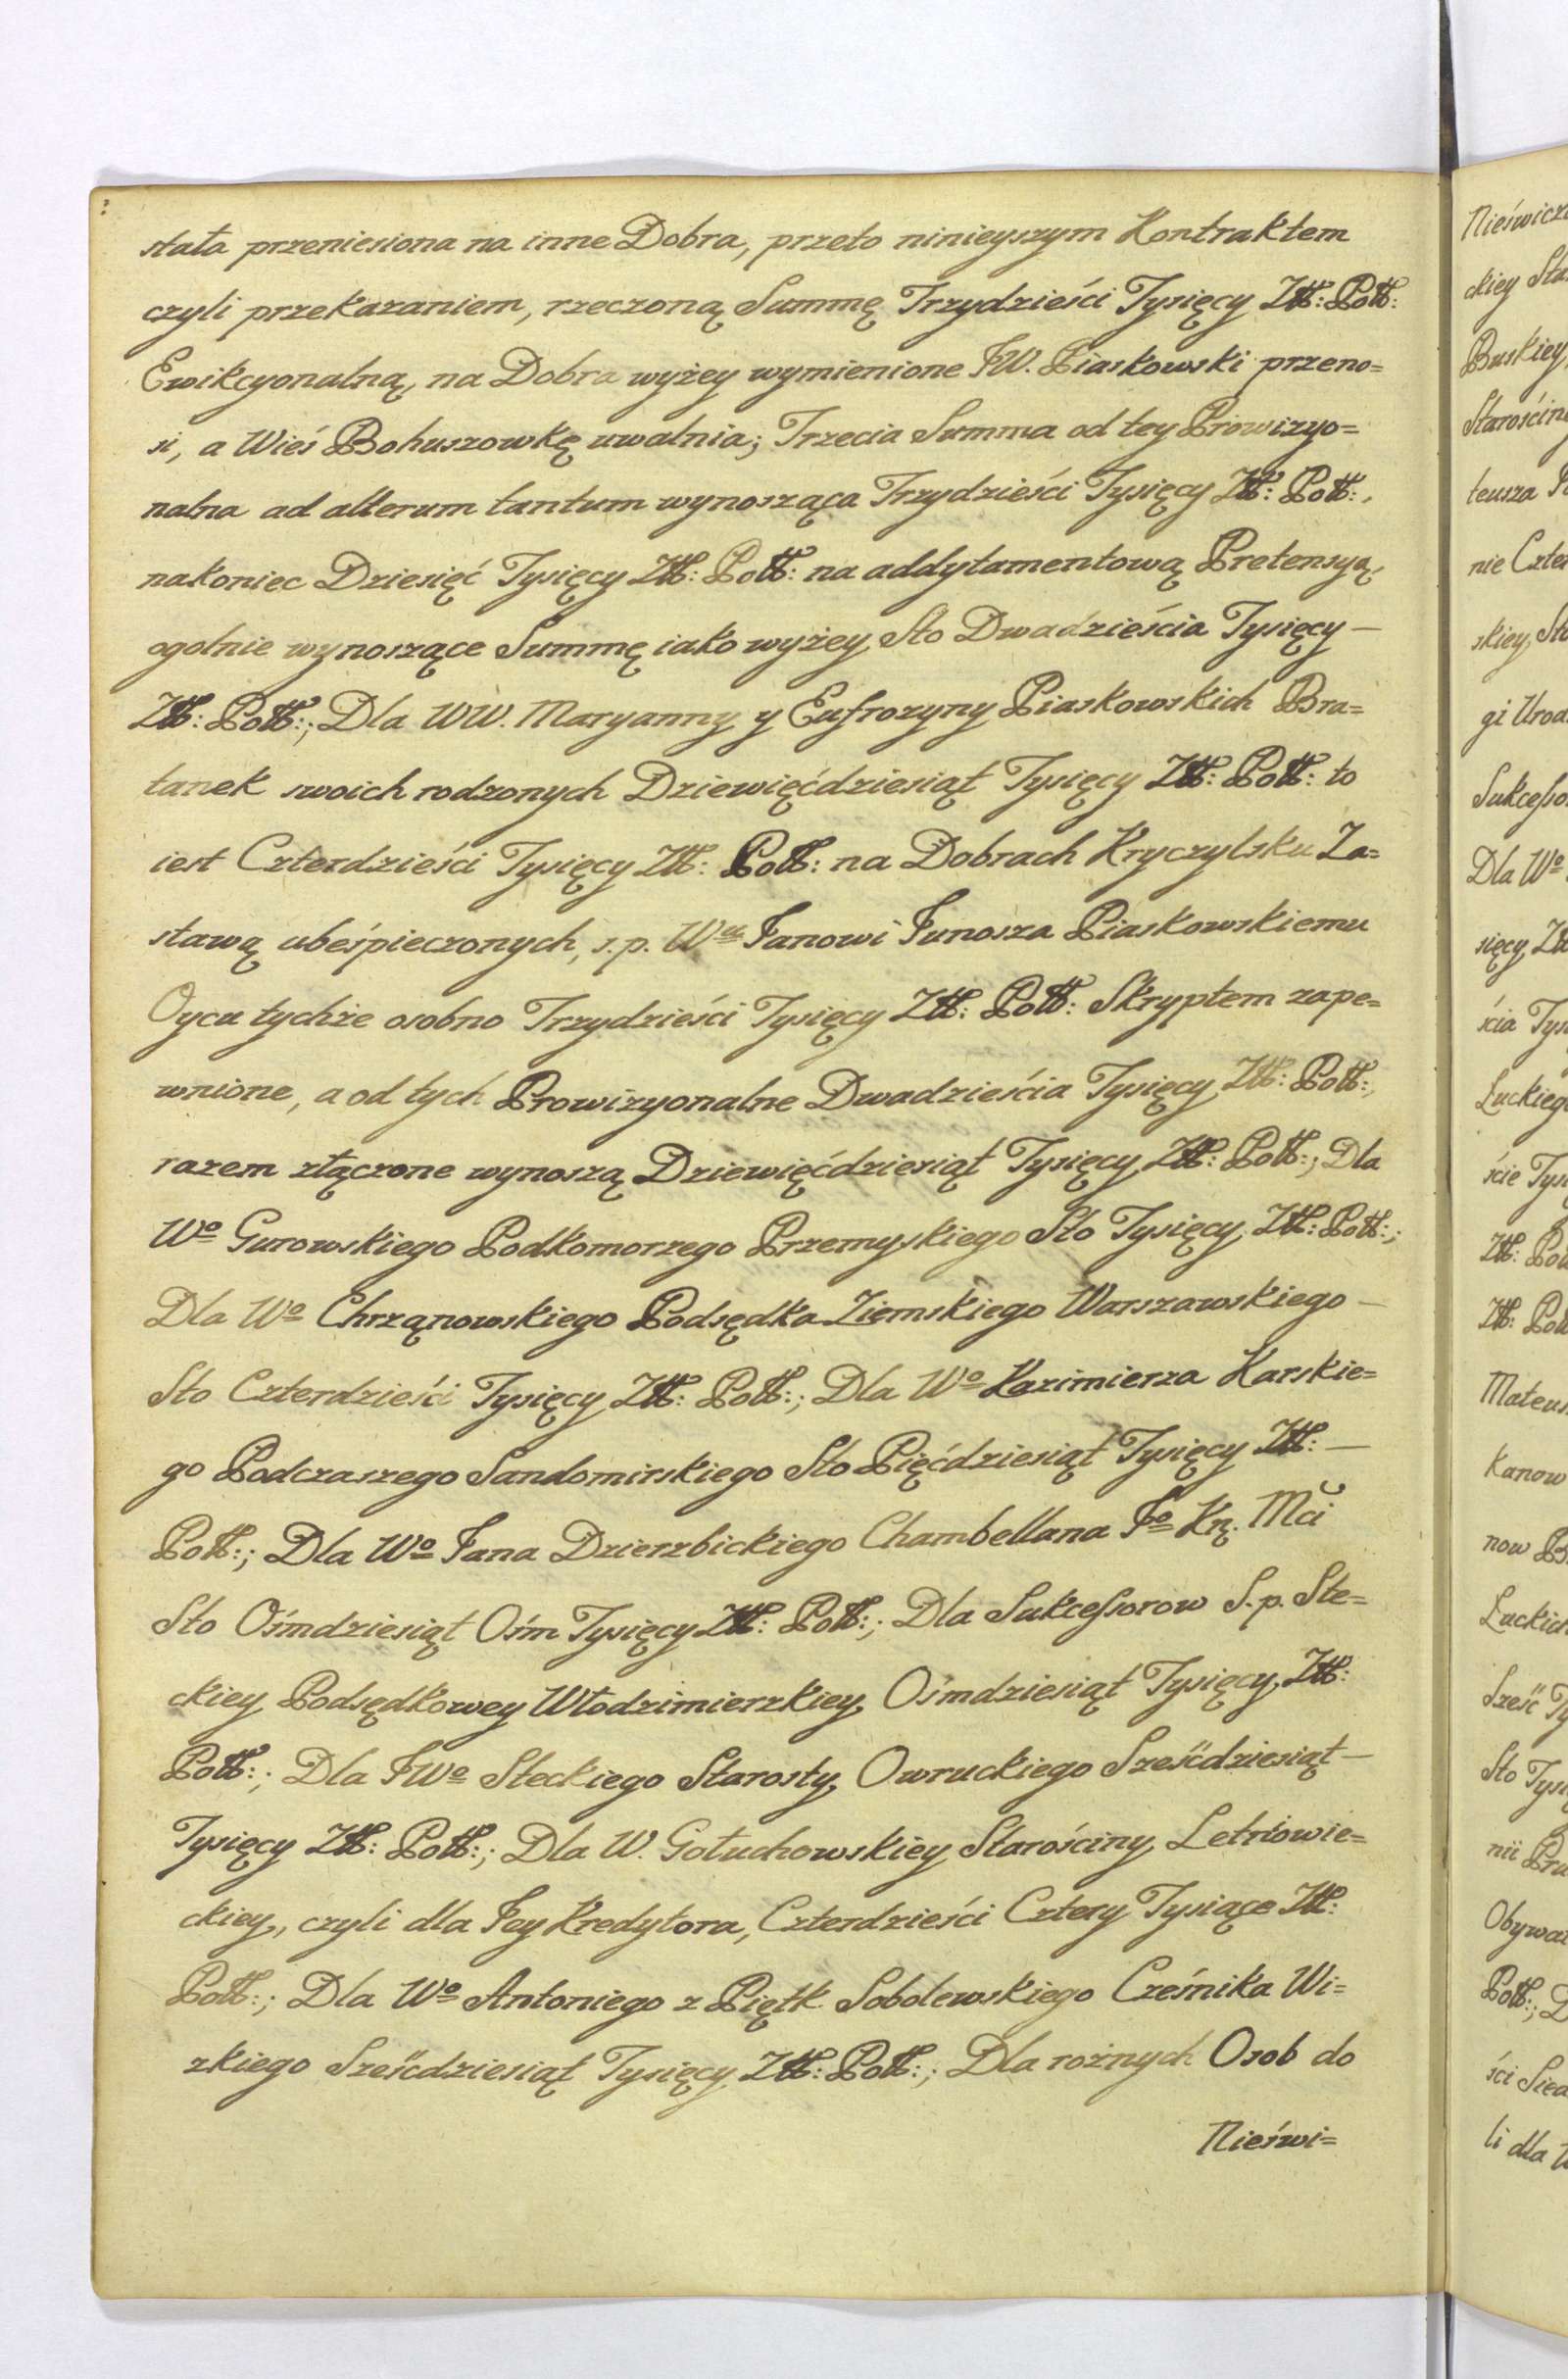 stała przeniesiona na inne Dobra, przeto ninieyszym Kontraktem
czyli przekazaniem, rzeczoną Summę Trzydzieści Tysięcy Złł: Poll:
Ewikcyonalną, na Dobra wyżey wymienione JW. Piaskowski przeno=
si, a Wieś Bohuszowkę uwalnia; Trzecia Summa od tey Prowizyo=
nalna ad alterum tantum wynosząca Trzydzieści Tysięcy Złł: Poll:,
nakoniec Dziesięć Tysięcy Złł: Poll: na addytamentową Pretensyą,
ogolnie wynoszące Summę iako wyżey Sto Dwadzieścia Tysięcy —
Złł: Poll:; Dla WW. Maryanny y Eufrozyny Piaskowskich Bra=
tanek swoich rodzonych Dziewięćdziesiąt Tysięcy Złł: Poll: to
iest Czterdzieści Tysięcy Złł: Poll: na Dobrach Kryczylsku Za=
stawą ubeśpieczonych, s.p. Wu Janowi Junosza Piaskowskiemu
Oycu tychże osobno Trzydzieści Tysięcy Złł: Poll: Skryptem zape=
wnione, a od tych Prowizyonalne Dwadzieścia Tysięcy Złł: Poll:,
razem złączone wynoszą Dziewięćdziesiąt Tysięcy Złł: Poll:; Dla
Wo Gurowskiego Podkomorzego Przemyskiego Sto Tysięcy Złł: Poll:;
Dla Wo Chrząnowskiego Podsędka Ziemskiego Warszawskiego —
Sto Czterdzieści Tysięcy Złł: Poll:; Dla Wo Kazimierza Karskie=
go Podczaszego Sandomirskiego Sto Pięćdziesiąt Tysięcy Złł: —
Poll:; Dla Wo Jana Dzierzbickiego Chambellana Jo Kr. Mci
Sto Ośmdziesiąt Ośm Tysięcy Złł: Poll:; Dla Sukcessorow S.p. Ste=
ckiey Podsędkowey Włodzimierzkiey Ośmdziesiąt Tysięcy Złł:
Poll:; Dla JWo Steckiego Starosty Owruckiego Sześćdziesiąt —
Tysięcy Złł: Poll:; Dla W. Gołuchowskiey Starościny Letniowie=
ckiey, czyli dla Jey Kredytora, Czterdzieści Cztery Tysiące Złł:
Poll:; Dla Wo Antoniego z Piętk Sobolewskiego Cześnika Wi=
zkiego Sześćdziesiąt Tysięcy Złł: Poll:; Dla rożnych Osob do
Nieświ=